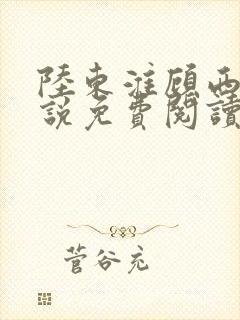 陸東淮顧西
說免費閱讀
菅谷充